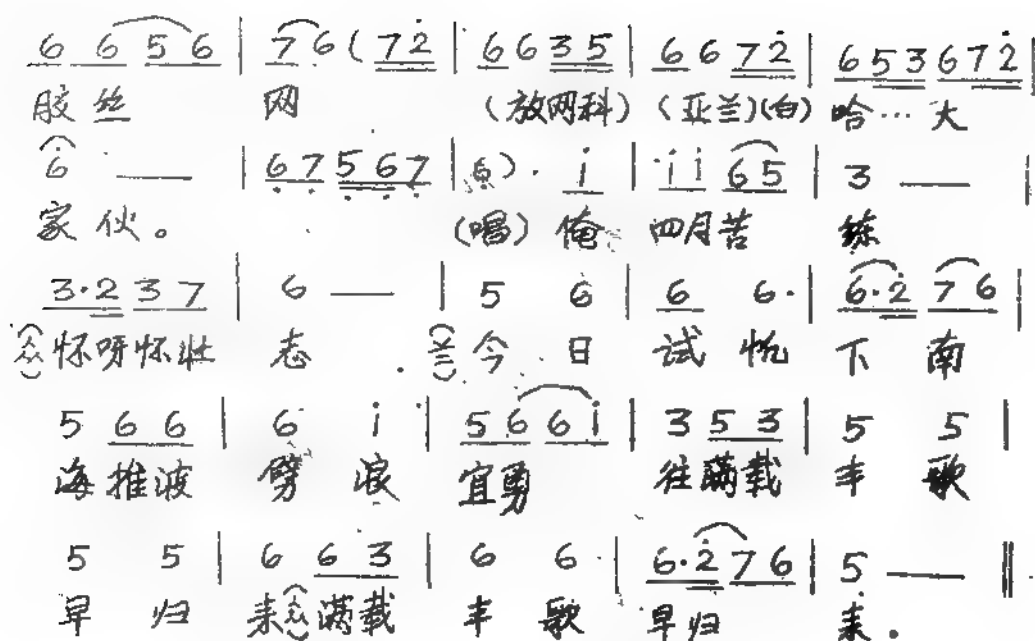 6 6 5 6 | 7 6 ( 7 2̇ | 6 6 3 5 | 6 6 7 2̇ | 6 5 3 6 7 2̇ |
胶 丝 网 (放网科) (亚兰)(白) 哈… 大
6 — | 6̣ 7̣ 5̣ 6̣ 7̣ | 6̣ ) · i̇ | i̇ i̇ 6 5 | 3 — |
家 伙。 (唱) 俺 四月苦 练
3·2 3 7 | 6 — | 5 6 | 6 6· | 6·2̇ 7 6 |
(众) 怀呀怀壮 志. 今 日 试 帆 下 南
5 6 6 | 6 i̇ | 5 6 6 i̇ | 3 5 3 | 5 5 |
海 推波 劈 浪 宜勇 往满载 丰 歌
5 5 | 6 6 3 | 6 6 | 6·2̇ 7 6 | 5 — ‖
早 归 来(众)满载 丰 歌 早归 来.